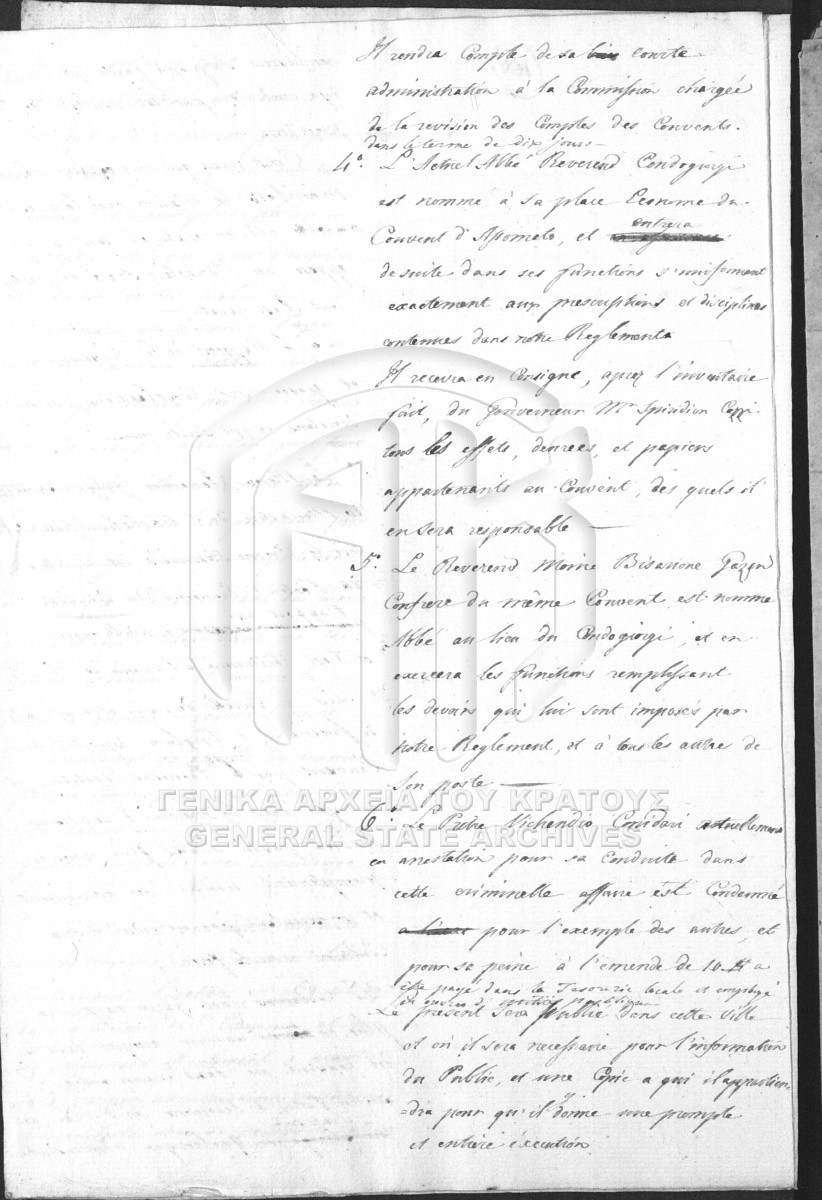 Il rendra Compte de sa courte
administration à la Commission chargée
de la revision des Comptes des Convents.
dans le terme de dix jours —
4°. L'Actuel Abbé Reverend Condogiorgi
est nommé à sa place Econome du
Convent d'Assomato, et entrera
de suite dans ses functions s'uniformant
exactement aux prescriptions et disciplines
contenues dans notre Reglement
Il recevra en Consigne, apréz l'inventaire
fait, du Gouverneur Mr Spiridion
tous les effets, denrees, et papiers
appartenants au Convent, des quels il
en sera responsable —
5°. Le Reverend Moine Bisarione
Confrere du même Convent est nommé
Abbé au lieu du Condogiorgi, et en
exercera les functions remplissant
les devoirs qui lui sont imposés par
notre Reglement, et à tous les autres de
son poste —
ΓΕΝΙΚΑ ΑΡΧΕΙΑ ΤΟΥ ΚΡΑΤΟΥΣ
GENERAL STATE ARCHIVES
6°. Le Prêtre Nichendrio Coridari actuellement
en arrestation pour sa conduite dans
cette criminelle affaire est Condamné
pour l'exemple des autres, et
pour sa peine à l'emende de 10 a
être payé dans la Tesorerie locale et employé
en
Le présent sera Publié dans cette ville
et où il sera necessaire pour l'information
du Public, et une Copie a qui il appartien-
=dra pour qu'il y donne une prompte
et entiere éxecution